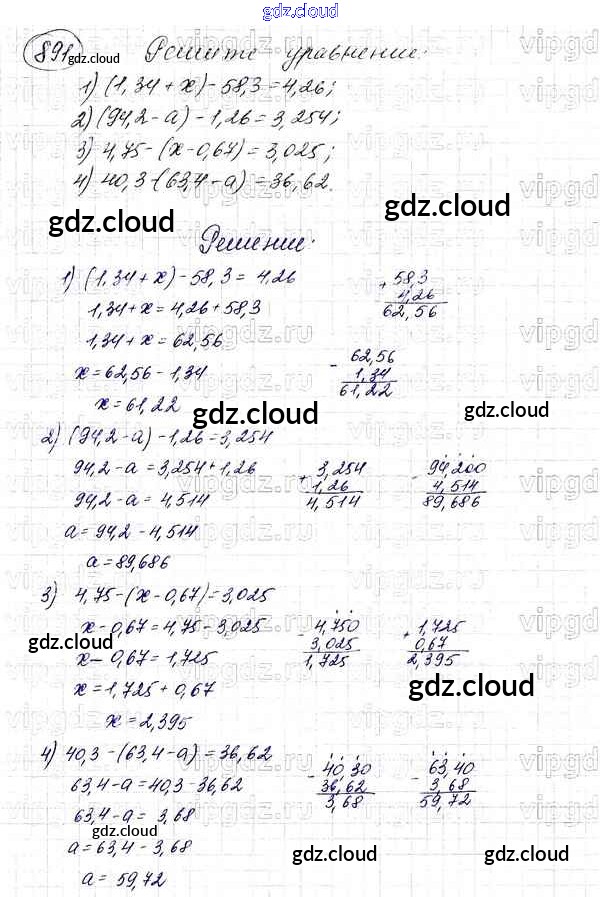 gdz.cloud
891 Решите уравнение:
1) (1,34 + x) - 58,3 = 4,26;
2) (94,2 - a) - 1,26 = 3,254;
3) 4,75 - (x - 0,67) = 3,025;
4) 40,3 - (63,4 - a) = 36,62.
gdz.cloud
gdz.cloud
Решение:
1) (1,34 + x) - 58,3 = 4,26
1,34 + x = 4,26 + 58,3
1,34 + x = 62,56
x = 62,56 - 1,34
x = 61,22
+ 58,3
4,26
62,56
- 62,56
1,34
61,22
gdz.cloud
gdz.cloud
2) (94,2 - a) - 1,26 = 3,254
94,2 - a = 3,254 + 1,26
94,2 - a = 4,514
a = 94,2 - 4,514
a = 89,686
+ 3,254
1,26
4,514
- 94,200
4,514
89,686
3) 4,75 - (x - 0,67) = 3,025
x - 0,67 = 4,75 - 3,025
x - 0,67 = 1,725
x = 1,725 + 0,67
x = 2,395
- 4,750
3,025
1,725
+ 1,725
0,67
2,395
gdz.cloud
gdz.cloud
4) 40,3 - (63,4 - a) = 36,62
63,4 - a = 40,3 - 36,62
63,4 - a = 3,68
a = 63,4 - 3,68
a = 59,72
- 40,30
36,62
3,68
- 63,40
3,68
59,72
gdz.cloud
gdz.cloud
gdz.cloud
vipgdz.ru